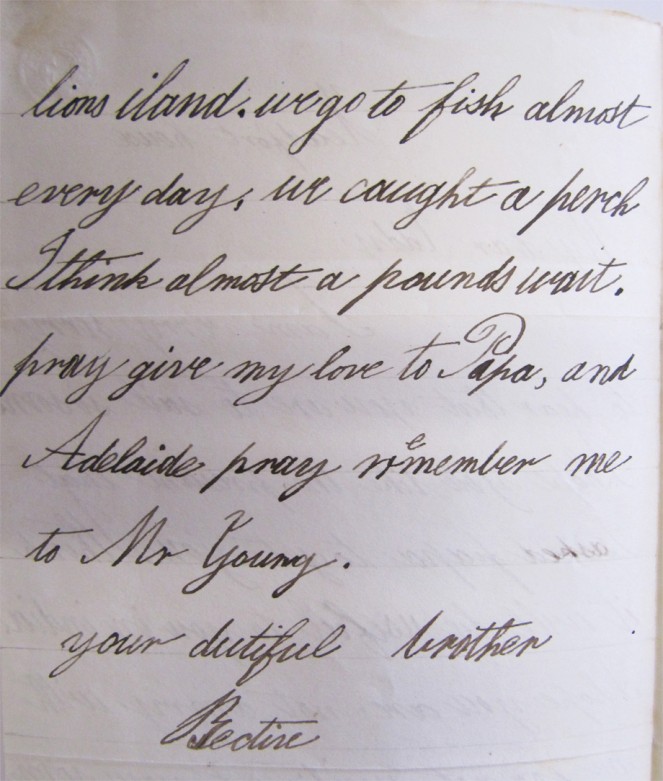 lions iland. we go to fish almost
every day, we caught a perch
I think almost a pounds wait.
pray give my love to Papa, and
Adelaide pray remember me
to Mr Young.
your dutiful brother